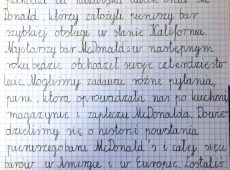 pochodzi od nazwiska dwóch braci Mc
Donald, którzy założyli pierwszy bar
szybkiej obsługi w stanie Kalifornia.
Najstarszy bar McDonald's w następnym
roku będzie obchodził swoje czterdziesto-
lecie. Mogliśmy zadawać różne pytania,
pani, która oprowadzała nas po kuchni,
magazynie i zapleczu McDonalda. Dowie-
dzieliśmy się o historii powstania
pierwszego baru McDonald's i całej sieci
barów w Ameryce i w Europie. Zostaliś